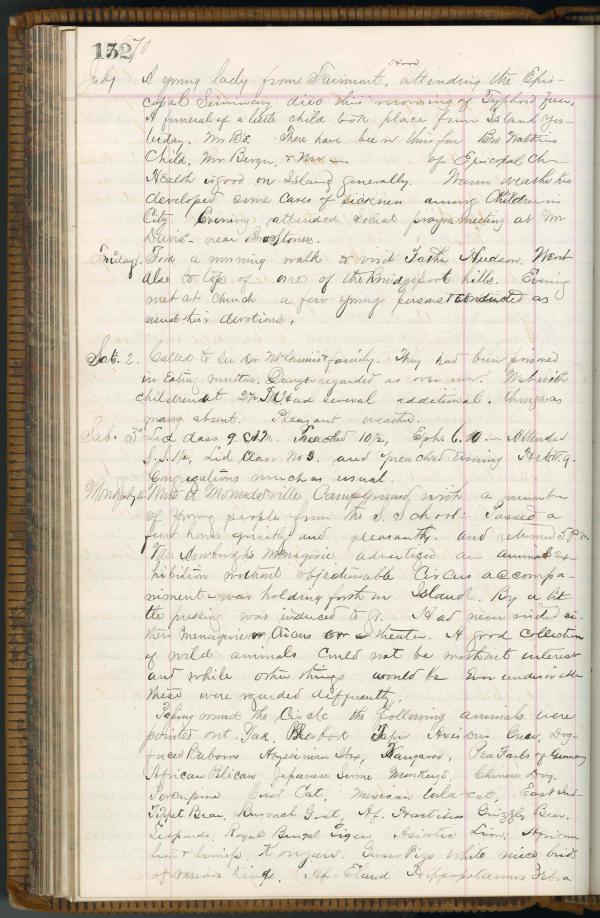 152
July A young lady from Fairmont, attending the Epis-
copal Seminary died this morning of Typhoid Fever,
A funeral of a little child took place from Island yes-
terday. Mr B's. There have been thus far Bro Watkins
Child. Mr Berger, & Mr — of Episcopal Ch
Health is good on Island generally. Warm weather has
developed some cases of sickness among Children in
City. Evening attended social prayer meeting at Mr
Davis - near
Friday 1. Took a morning walk to visit Father Hudson. Went
also to top of one of the Bridgeport hills. Evening
met at Church a few young persons & conducted as
usual their devotions.
Sat. 2. Called to see Dr family. They had been poisoned
in eating Danger regarded as over now. Met with
children at 2½ P.M. had several additional.
many absent. Pleasant weather.
Sab. 3d Led class 9 A.M. Preached 10½, Eph. 6.10 - Attended
S.S. 1½, Led Class No 3. and preached evening
Congregations much as usual.
Mond July 4 Went to Moundsville Campground with a number
of young people from the S. School. Passed a
few hours quietly and pleasantly. and returned 5 P.M
menagerie advertised an animal ex-
hibition without objectionable Circus accompa-
niment - was holding forth on Island. By a bit
the pressing was induced to go. Had never visited ei-
ther menagerie or Circus or a theater. A good collection
of wild animals could not be without interest
and while other things would be even undesirable
these were regarded differently.
Taking round the Circle the following animals were
pointed out. Yak, Blesbok Tapir Deer, Dog-
faced Baboon Abyssinian Ibex, Kangaroo,
African Pelican Japanese Swine Monkeys, Chinese Dog.
Porcupine Civet Cat, Mexican cat, East Ind-
Bear, Goat, Af. Grizzly Bear.
Leopards. Royal Bengal Tiger Asiatic Lion. African
lion & lioness. Guinea Pigs white mice birds
of various kinds. Af- Eland Hippopotamus Zebra